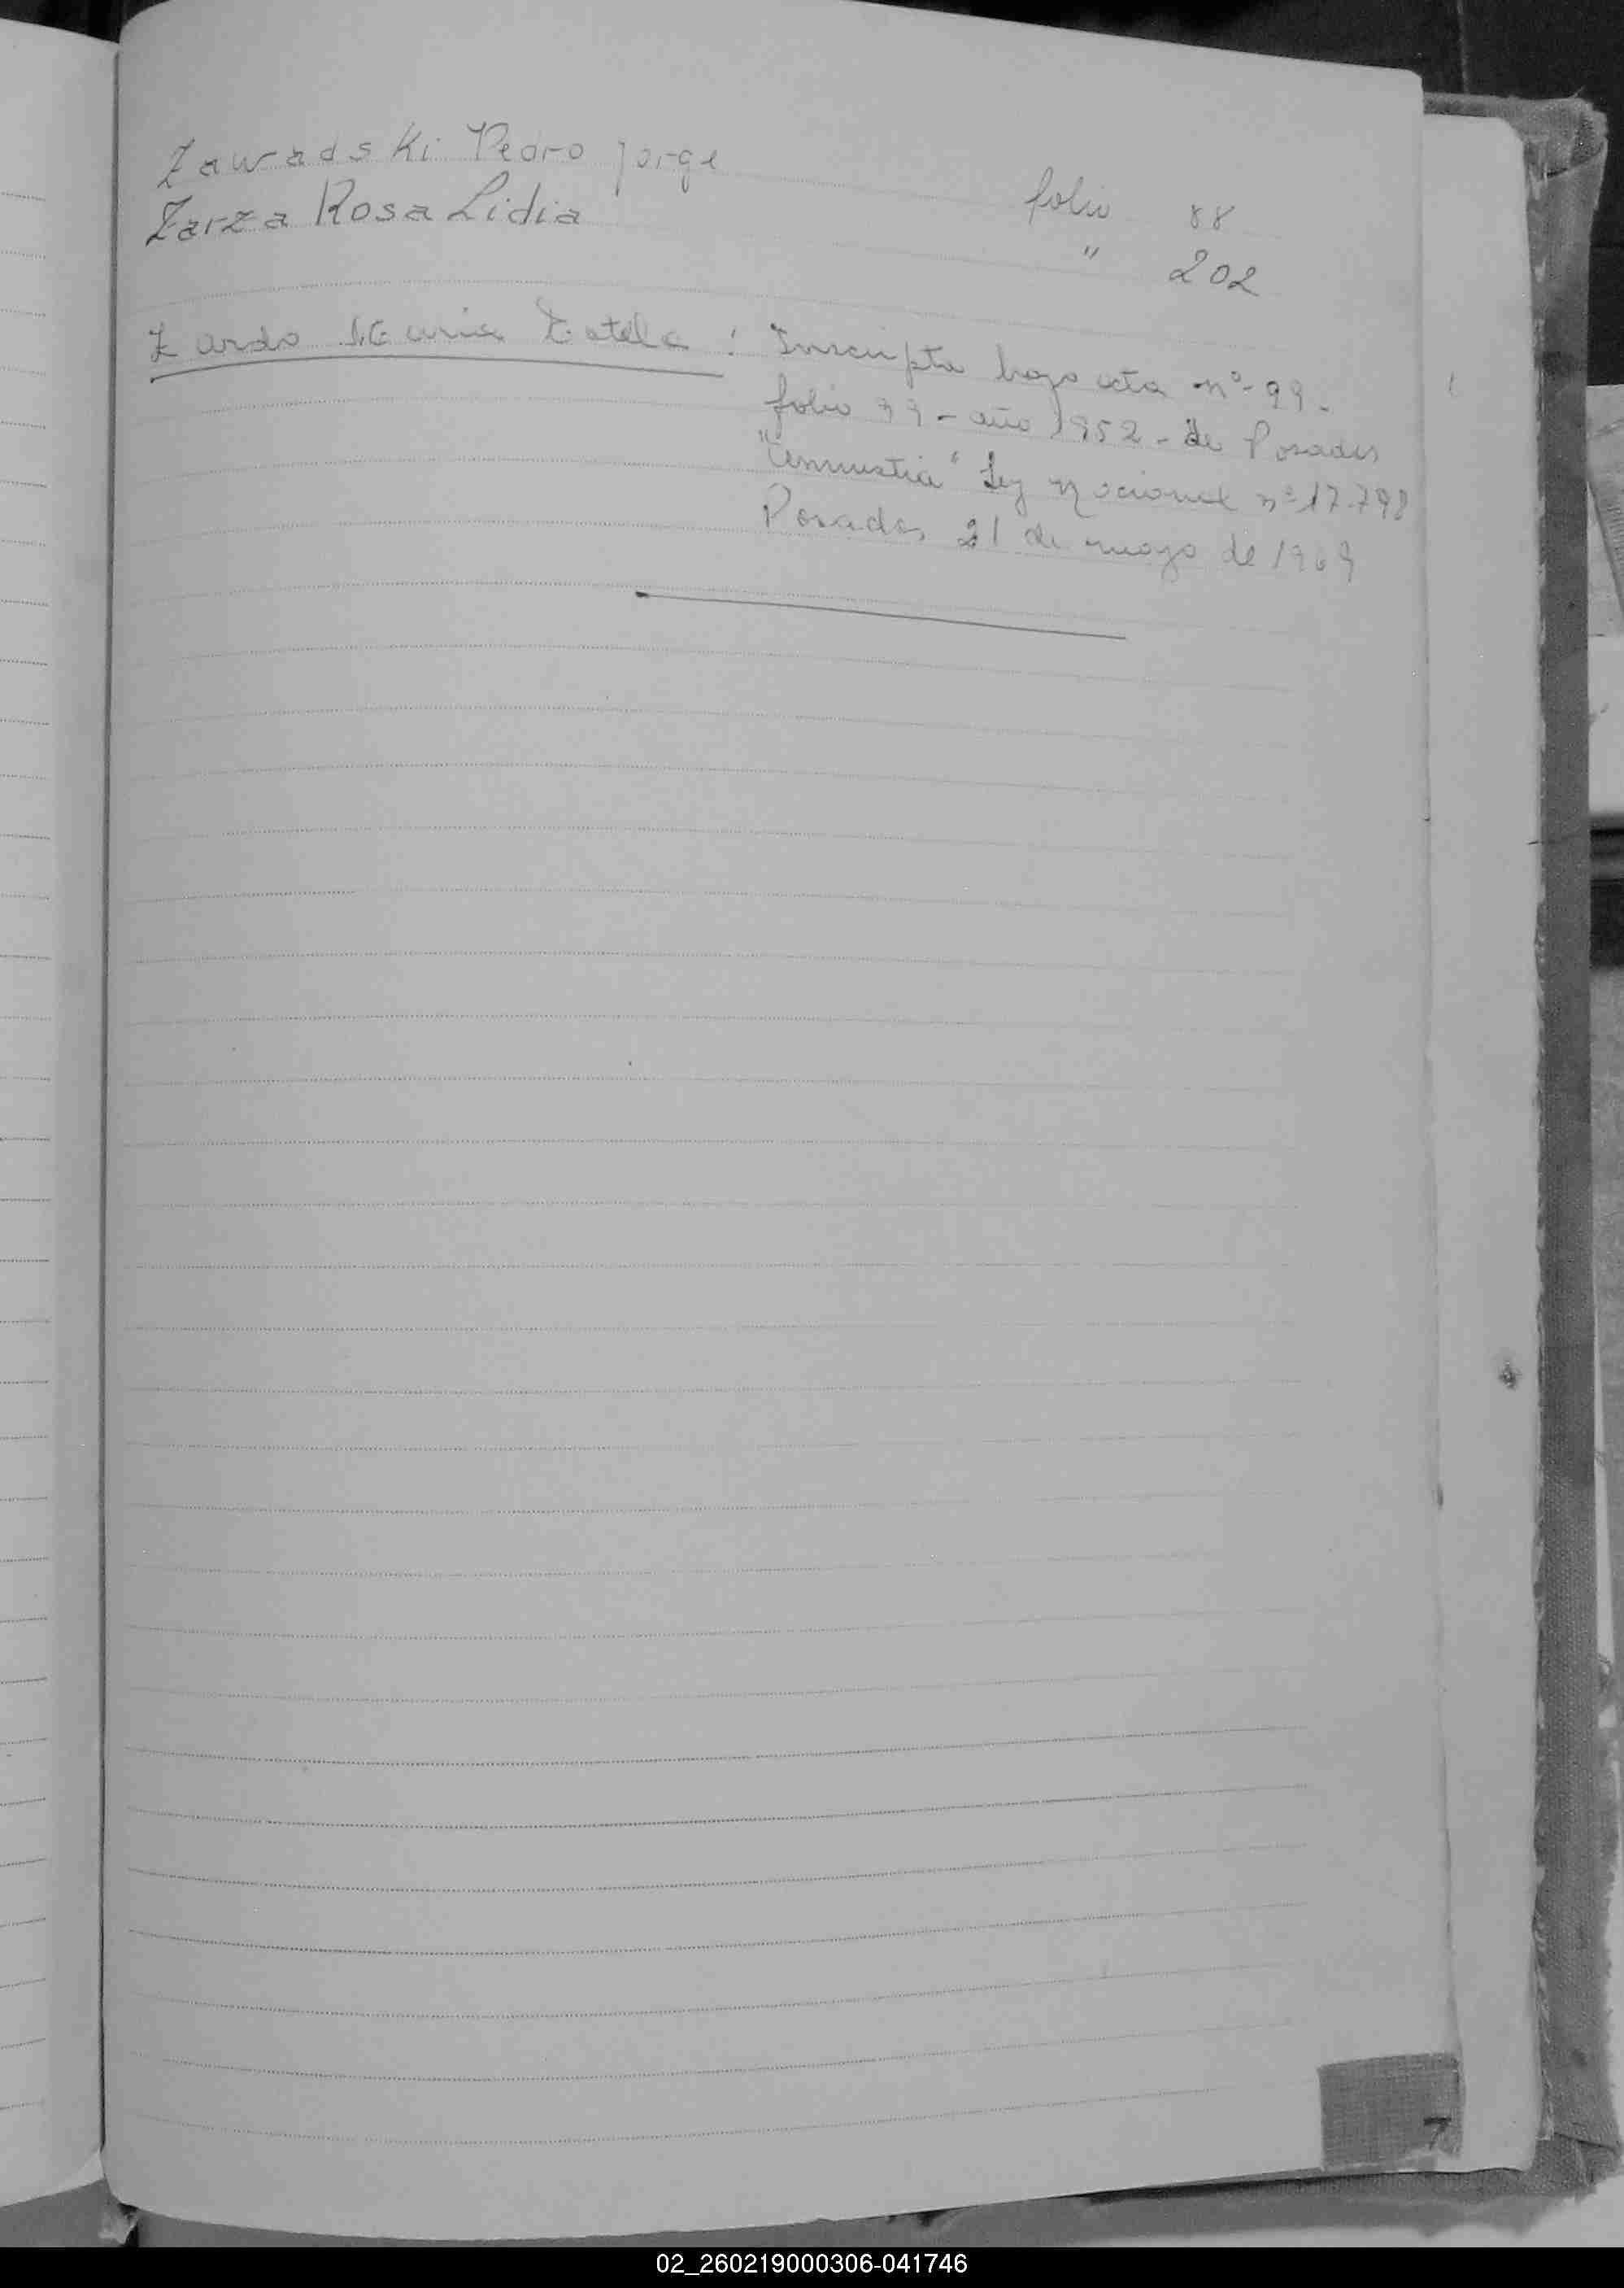 Zawadski Pedro Jorge folio 88
Zarza Rosa Lidia " 202
Zardo Maria Estela : Inscripta bajo acta nº 99.
folio 99 - año 1952 - de Posadas
"Amnistia" Ley Nacional nº 17.798
Posadas, 21 de mayo de 1969
Z
02_260219000306-041746